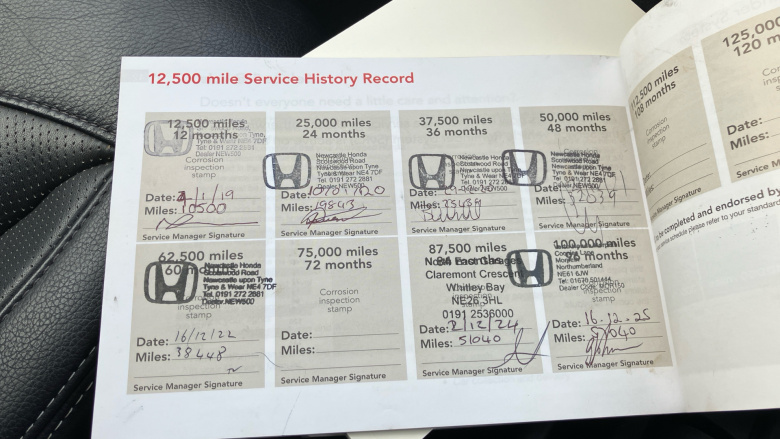 12,500 mile Service History Record
12,500 miles
12 months
Tel: 0191 272 2881
Dealer NEW500
Corrosion
inspection
stamp
Date: 2/1/19
Miles: 10500
Service Manager Signature
25,000 miles
24 months
Newcastle Honda
Scotswood Road
Newcastle upon Tyne
Tyne & Wear NE4 7DF
Tel. 0191 272 2881
Dealer NEW500
Date:
Miles: 19843
Service Manager Signature
37,500 miles
36 months
Newcastle Honda
Scotswood Road
Newcastle upon Tyne
Tyne & Wear NE4 7DF
Tel. 0191 272 2881
Dealer NEW500
Date:
Miles: 25439
Service Manager Signature
50,000 miles
48 months
Newcastle Honda
Scotswood Road
Newcastle upon Tyne
Tyne & Wear NE4 7DF
Tel. 0191 272 2881
Dealer NEW500
Date:
Miles: 32039
Service Manager Signature
62,500 miles
60 months
Newcastle Honda
Scotswood Road
Newcastle upon Tyne
Tyne & Wear NE4 7DF
Tel. 0191 272 2881
Dealer NEW500
inspection
stamp
Date: 16/12/22
Miles: 38448
Service Manager Signature
75,000 miles
72 months
Corrosion
inspection
stamp
Date:
Miles:
Service Manager Signature
87,500 miles
84 months
North East Garages
Claremont Crescent
Whitley Bay
NE26 3HL
0191 2536000
Date: 2/12/24
Miles: 51040
Service Manager Signature
100,000 miles
96 months
Northumberland
NE61 6JW
Tel: 01670 501444
Dealer Code: MOR150
stamp
Date: 16-12-25
Miles: 57040
Service Manager Signature
112,500 miles
108 months
Corrosion
inspection
stamp
125,000
120 m
Date:
Miles:
Service M